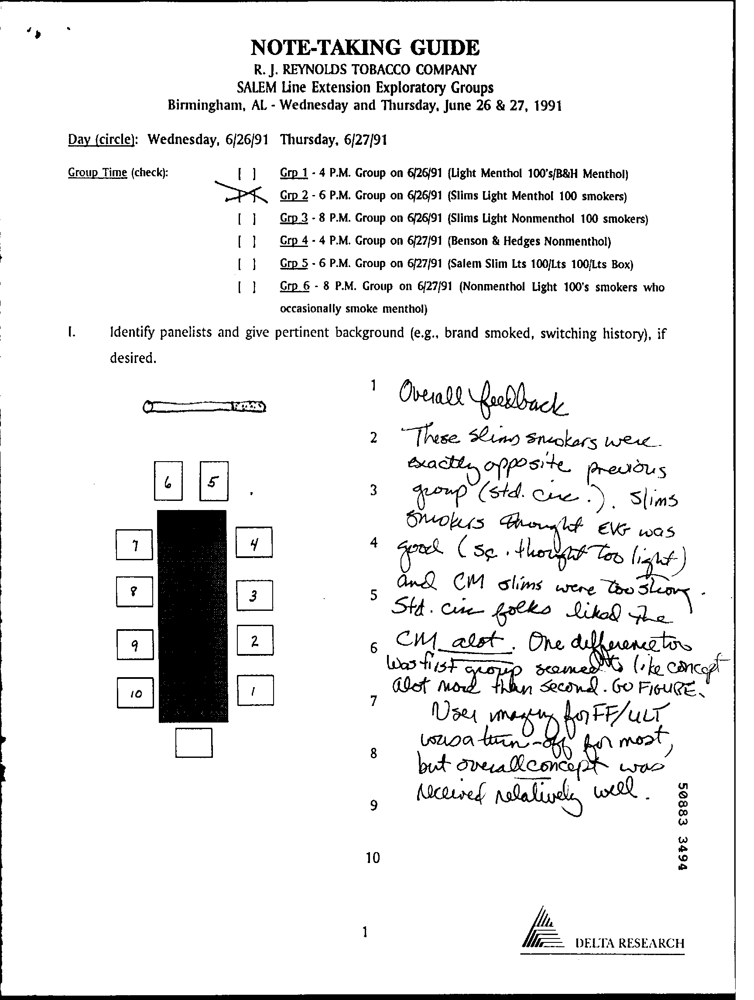 NOTE-TAKING GUIDE
R. J. REYNOLDS TOBACCO COMPANY
SALEM Line Extension Exploratory Groups
Birmingham, AL - Wednesday and Thursday, June 26 & 27, 1991
Day (circle): Wednesday, 6/26/91 Thursday, 6/27/91
Group Time (check): [ ] Grp 1 - 4 P.M. Group on 6/26/91 (Light Menthol 100's/B&H Menthol)
[X] Grp 2 - 6 P.M. Group on 6/26/91 (Slims Light Menthol 100 smokers)
[ ] Grp 3 - 8 P.M. Group on 6/26/91 (Slims Light Nonmenthol 100 smokers)
[ ] Grp 4 - 4 P.M. Group on 6/27/91 (Benson & Hedges Nonmenthol)
[ ] Grp 5 - 6 P.M. Group on 6/27/91 (Salem Slim Lts 100/Lts 100/Lts Box)
[ ] Grp 6 - 8 P.M. Group on 6/27/91 (Nonmenthol Light 100's smokers who
occasionally smoke menthol)
I. Identify panelists and give pertinent background (e.g., brand smoked, switching history), if
desired.
6 5
7 4
8 3
9 2
10 1
1 Overall feedback
2 These slims smokers were
exactly opposite previous
3 group (std. circ.). Slims
smokers thought EVG was
4 good (sc. thought too light)
and CM slims were too strong.
5 Std. circ folks liked the
6 CM alot. One difference too
was first group seemed to like concept
alot more than second. GO FIGURE.
7 User imagery for FF/ULT
was a turn-off for most,
8 but overall concept was
received relatively well.
9
10
50883 3494
1
DELTA RESEARCH